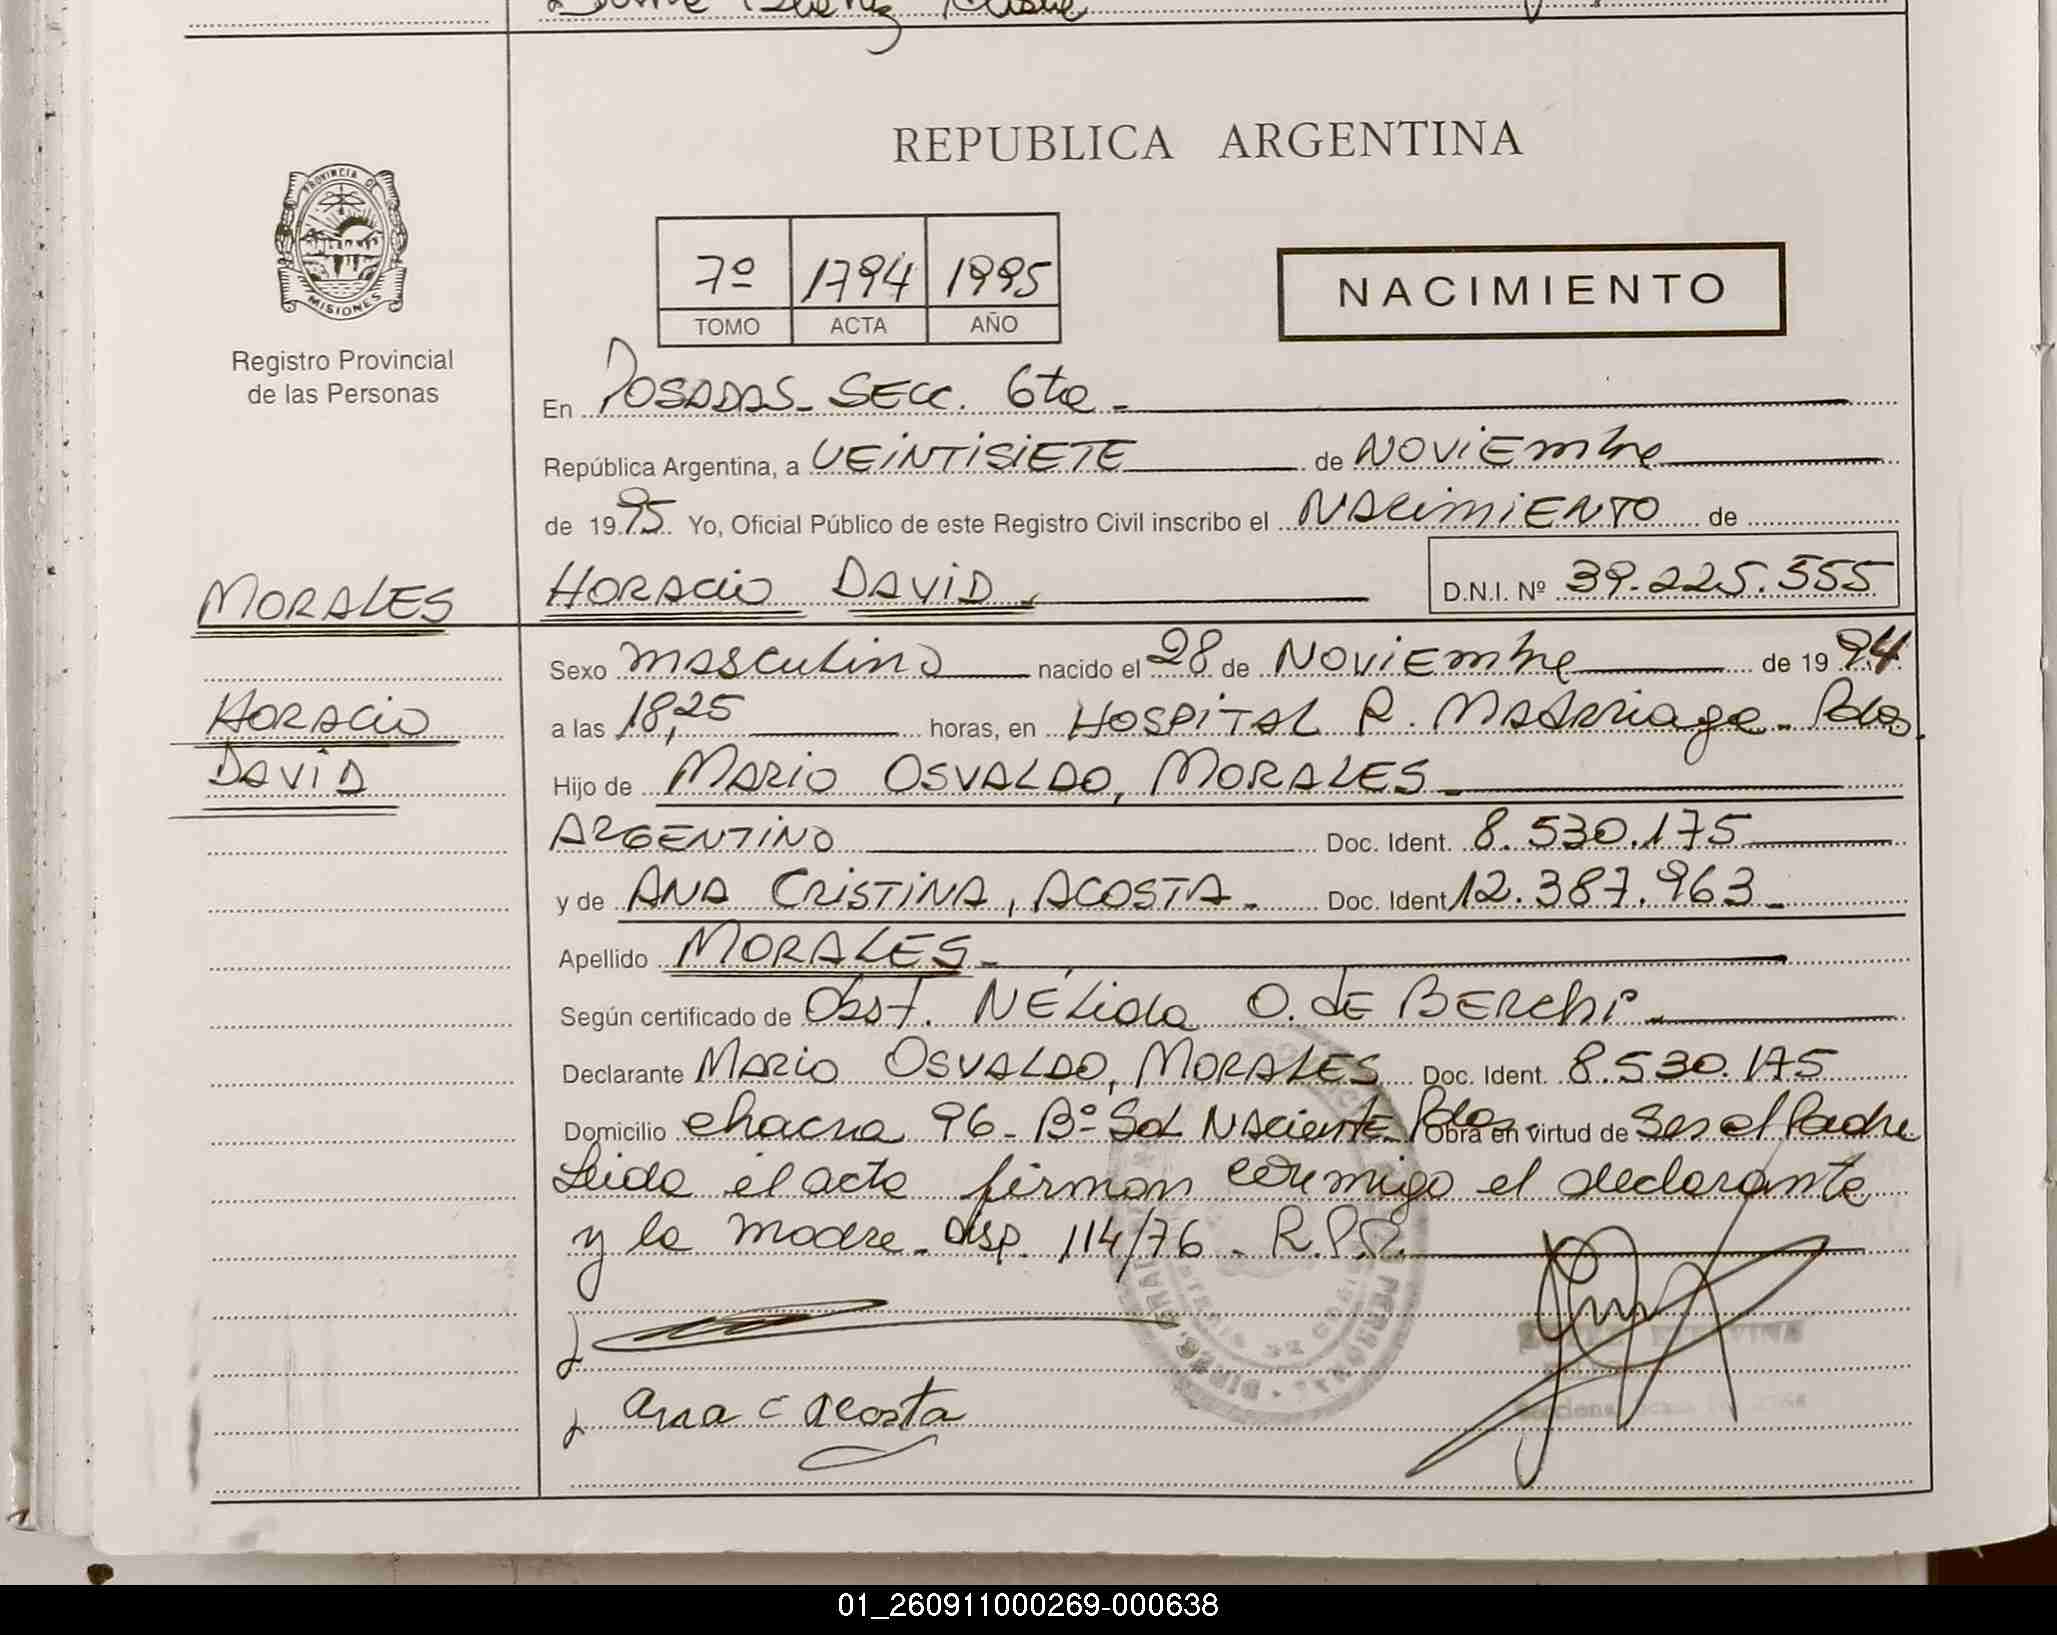 REPUBLICA ARGENTINA
PROVINCIA DE
MISIONES
Registro Provincial
de las Personas
7º 1794 1995
TOMO ACTA AÑO
NACIMIENTO
En POSADAS - SECC. 6ta -
República Argentina, a VEINTISIETE de NOVIEMbre
de 1995. Yo, Oficial Público de este Registro Civil inscribo el NACIMIENTO de
MORALES
HORACIO DAVID
D.N.I. Nº 39.225.555
Sexo masculino nacido el 28 de NOVIEMbre de 1994
HORACIO
DAVID
a las 18,25 horas, en HOSPITAL R. MADArriaga - Pdas.
Hijo de MARIO OSVALDO, MORALES -
ARGENTINO Doc. Ident. 8.530.175
y de ANA CRISTINA, ACOSTA - Doc. Ident 12.387.963 -
Apellido MORALES -
Según certificado de Obst. NÉLida O. dE BERchi -
Declarante MARIO OSVALDO, MORALES Doc. Ident. 8.530.175
Domicilio chacra 96 - Bº Sol NAciente Pdas. Obra en virtud de Ser el Padre
Leida el acta firman conmigo el declarante
y la madre - Disp. 114/76 - R.P.P.
Ana C Acosta
01_260911000269-000638